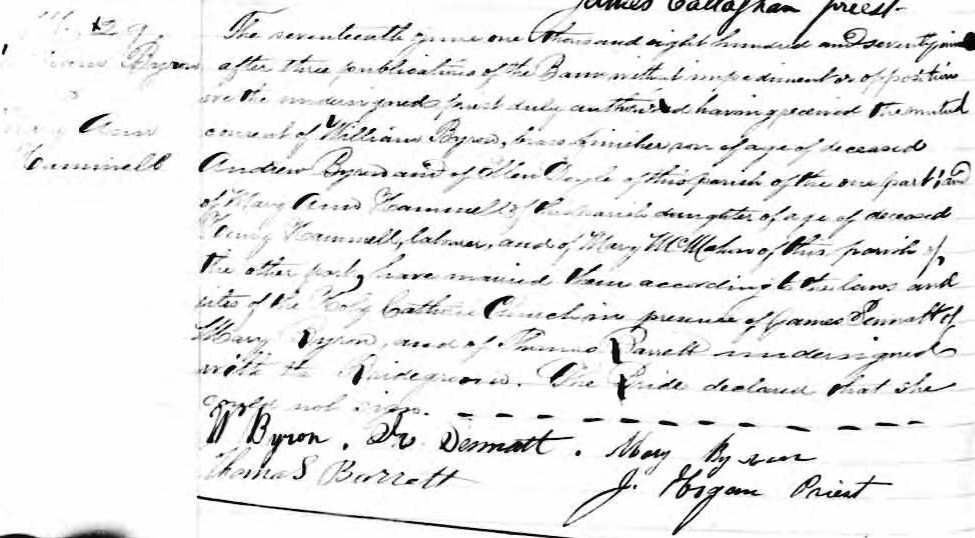 James Callaghan priest-
M. 29.
William Byron
&
Mary Ann
Hammell
The seventeenth June one thousand eight hundred and seventy
after three publications of the Bans without impediment or opposition
we the undersigned priest duly authorized having received the mutual
consent of William Byron, brass finisher son of age of deceased
Andrew Byron and of Ellen Doyle of this parish of the one part, and
of Mary Ann Hammell of this parish daughter of age of deceased
Henry Hammell, laborer, and of Mary McMahon of this parish of
the other part, have married them according to the laws and
rites of the Holy Catholic Church in presence of James Dermatt of
Mary Byron, and of Thomas Barrett undersigned
with the Bridegroom. The Bride declared that she
could not sign.
W Byron. Dermatt. Mary Byron
Thomas Barrett
J. Hogan Priest